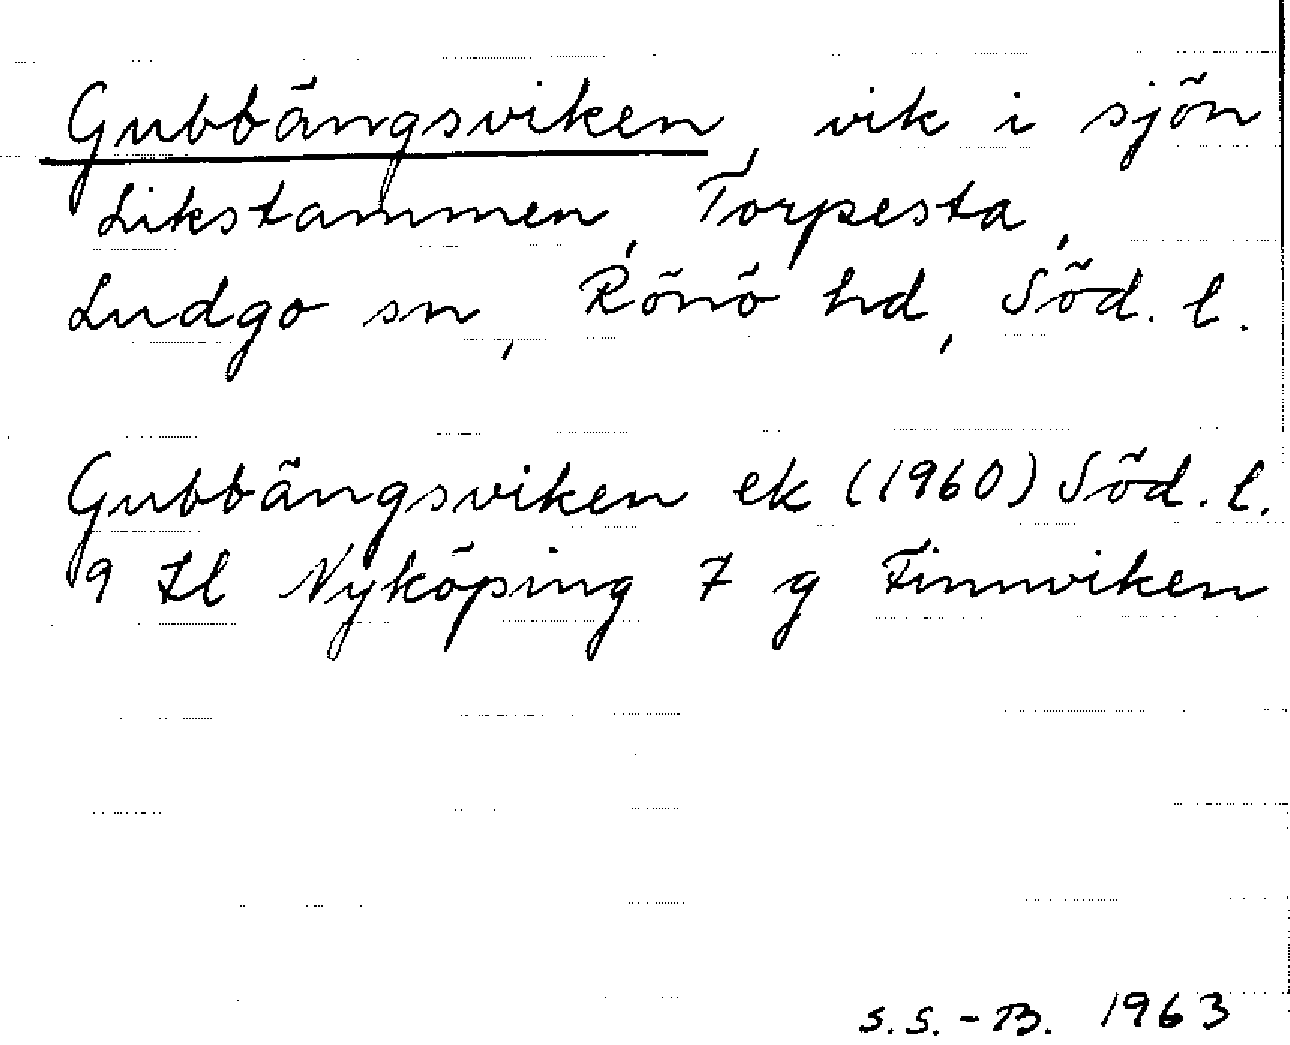 Gubbängsviken, vik i sjön
Likstammen, Torpesta,
Ludgo sn, Rönö hd, Söd. l.
Gubbängsviken ek (1960) Söd. l.
9 Il Nyköping 7 g Finnviken
S.S.-B. 1963